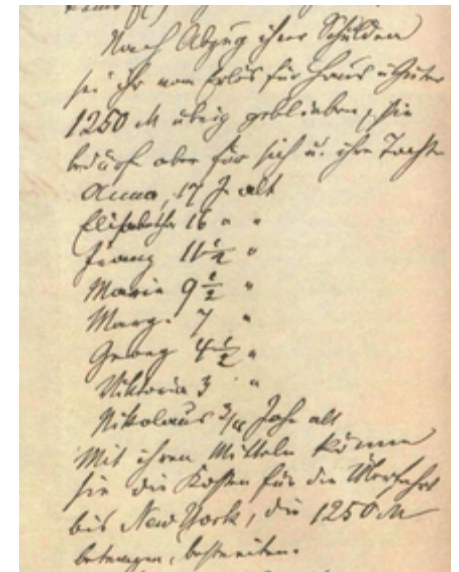 Nach Abzug ihrer Schulden
sei ihr vom Erlös für Haus u. Güter
1250 M übrig geblieben, sie
bedürfe aber für sich u. ihre Tocht.
Anna, 17 J. alt
Elisabetha 16 " "
Franz 11 1/2 "
Maria 9 1/2 "
Marg. 7 "
Georg 4 1/2 "
Viktoria 3 "
Nikolaus 3/4 Jahr alt
Mit ihren Mitteln könne
sie die Kosten für die Überfahrt
bis New York, die 1250 M
betragen, bestreiten.